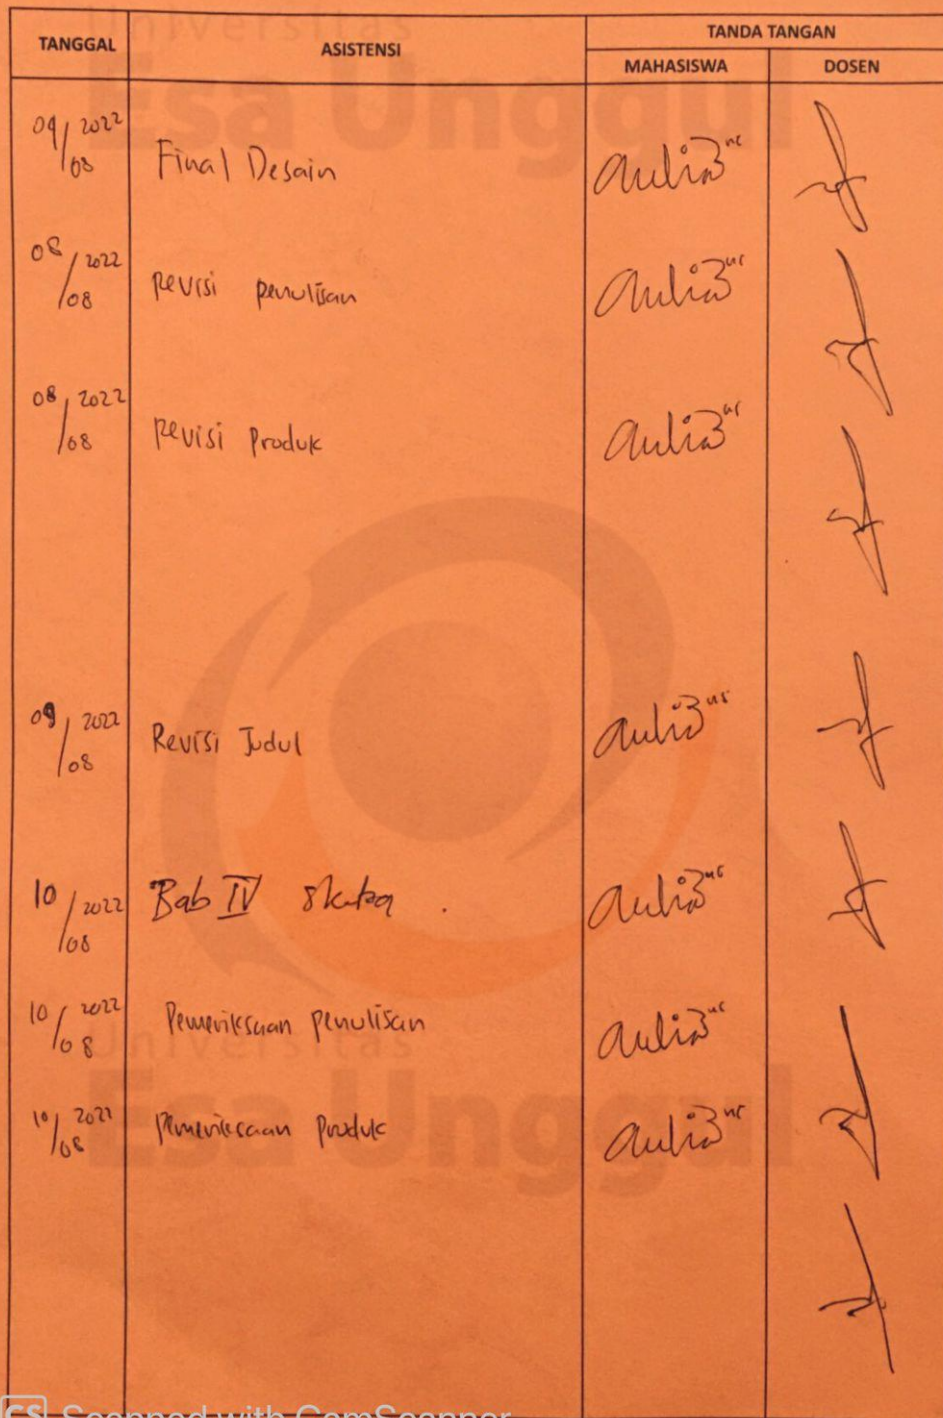 Universitas
Esa Unggul
TANGGAL ASISTENSI TANDA TANGAN
MAHASISWA DOSEN
/08 2022 Final Desain
08/08 2022 Revisi penulisan
08/08 2022 Revisi Produk
09/08 2022 Revisi Judul
10/08 2022 Bab IV
10/08 2022 Pemeriksaan penulisan
10/08 2022 Pemeriksaan Produk
Universitas
Esa Unggul
CS Scanned with CamScanner